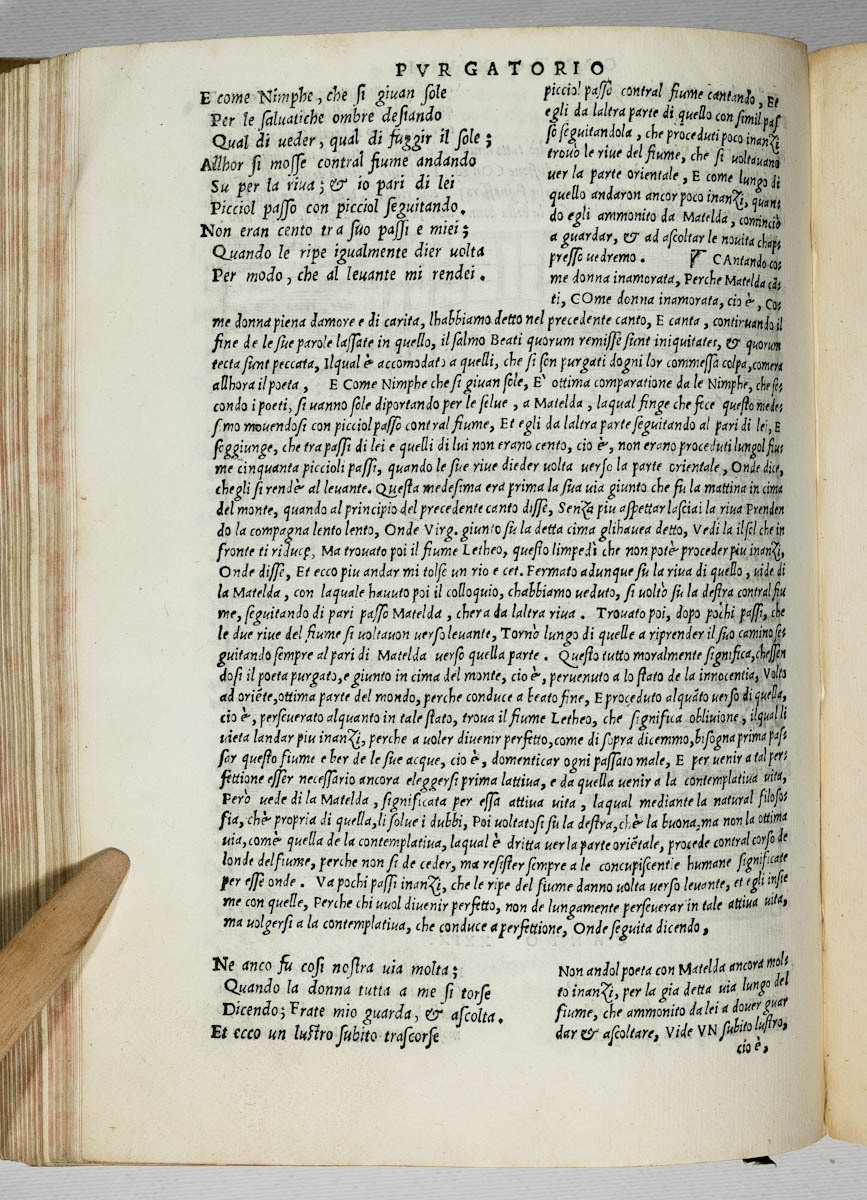 PVRGATORIO
E come Nimphe, che si giuan sole
Per le saluatiche ombre desiando
Qual di ueder, qual di fuggir il sole;
Allhor si mosse contral fiume andando
Su per la riua; & io pari di lei
Picciol passo con picciol seguitando.
Non eran cento tra suo passi e miei;
Quando le ripe igualmente dier uolta
Per modo, che al leuante mi rendei.
picciol passo contral fiume cantando, Et
egli da laltra parte di quello con simil pas
so seguitandola, che proceduti poco inanzi
trouò le riue del fiume, che si uoltauano
uer la parte orientale, E come lungo di
quello andaron ancor poco inanzi, quan
do egli ammonito da Matelda, cominciò
a guardar, & ad ascoltar le nouita ch'ap
presso uedremo. CAntando co=
me donna inamorata, Perche Matelda cã=
ti, COme donna inamorata, cio è, Co=
me donna piena damore e di carita, lhabbiamo detto nel precedente canto, E canta, continuando il
fine de le sue parole lassate in quello, il salmo Beati quorum remisse sunt iniquitates, & quorum
tecta sunt peccata, Ilqual è accomodato a quelli, che si son purgati dogni lor commessa colpa, comera
allhora il poeta, E COme Nimphe che si giuan sole, E' ottima comparatione da le Nimphe, che se=
condo i poeti, si uanno sole diportando per le selue, a Matelda, laqual finge che fece questo medes
simo mouendosi con picciol passo contral fiume, Et egli da laltra parte seguitando al pari di lei, E
soggiunge, che tra passi di lei e quelli di lui non erano cento, cio è, non erano proceduti lungol fiu=
me cinquanta piccioli passi, quando le sue riue dieder uolta uerso la parte orientale, Onde dice,
chegli si rendè al leuante. Questa medesima era prima la sua uia giunto che fu la mattina in cima
del monte, quando al principio del precedente canto disse, Senza piu aspettar lasciai la riua Prenden
do la campagna lento lento, Onde Virg. giunto su la detta cima glihauea detto, Vedi la ilsol che in
fronte ti riduce, Ma trouato poi il fiume Letheo, questo limpedì che non potè proceder piu inanzi,
Onde disse, Et ecco piu andar mi tolse un rio e cet. Fermato adunque su la riua di quello, uide di
la Matelda, con laquale hauuto poi il colloquio, chabbiamo ueduto, si uoltò su la destra contral fiu
me, seguitando di pari passo Matelda, chera da laltra riua. Trouato poi, dopo pochi passi, che
le due riue del fiume si uoltauon uerso leuante, Tornò lungo di quelle a riprender il suo camino se=
guitando sempre al pari di Matelda uerso quella parte. Questo tutto moralmente significa, chessen
dosi il poeta purgato, e giunto in cima del monte, cio è, peruenuto a lo stato de la innocentia, Volto
ad oriẽte, ottima parte del mondo, perche conduce a beato fine, E proceduto alquãto uerso di quella,
cio è, perseuerato alquanto in tale stato, troua il fiume Letheo, che significa obliuione, ilqual li
uieta landar piu inanzi, perche a uoler diuenir perfetto, come di sopra dicemmo, bisogna prima pas=
sar questo fiume e ber de le sue acque, cio è, domenticar ogni passato male, E per uenir a tal per=
fettione esser necessario ancora eleggersi prima lattiua, e da quella uenir a la contemplatiua uita,
Però uede di la Matelda, significata per essa attiua uita, laqual mediante la natural filoso=
fia, chè propria di quella, li solue i dubbi, Poi uoltatosi su la destra, chè la buona, ma non la ottima
uia, comè quella de la contemplatiua, laqual è dritta uer la parte oriẽtale, procede contral corso de
londe del fiume, perche non si de ceder, ma resister sempre a le concupiscentie humane significate
per esse onde. Va pochi passi inanzi, che le ripe del fiume danno uolta uerso leuante, et egli insie
me con quelle, Perche chi uuol diuenir perfetto, non de lungamente perseuerar in tale attiua uita,
ma uolgersi a la contemplatiua, che conduce a perfettione, Onde seguita dicendo,
Ne anco fu cosi nostra uia molta;
Quando la donna tutta a me si torse
Dicendo; Frate mio guarda, & ascolta.
Et ecco un lustro subito trascorse
Non andol poeta con Matelda ancora mol=
to inanzi, per la gia detta uia lungo del
fiume, che ammonito da lei a douer guar
dar & ascoltare, Vide VN subito lustro,
cio è,